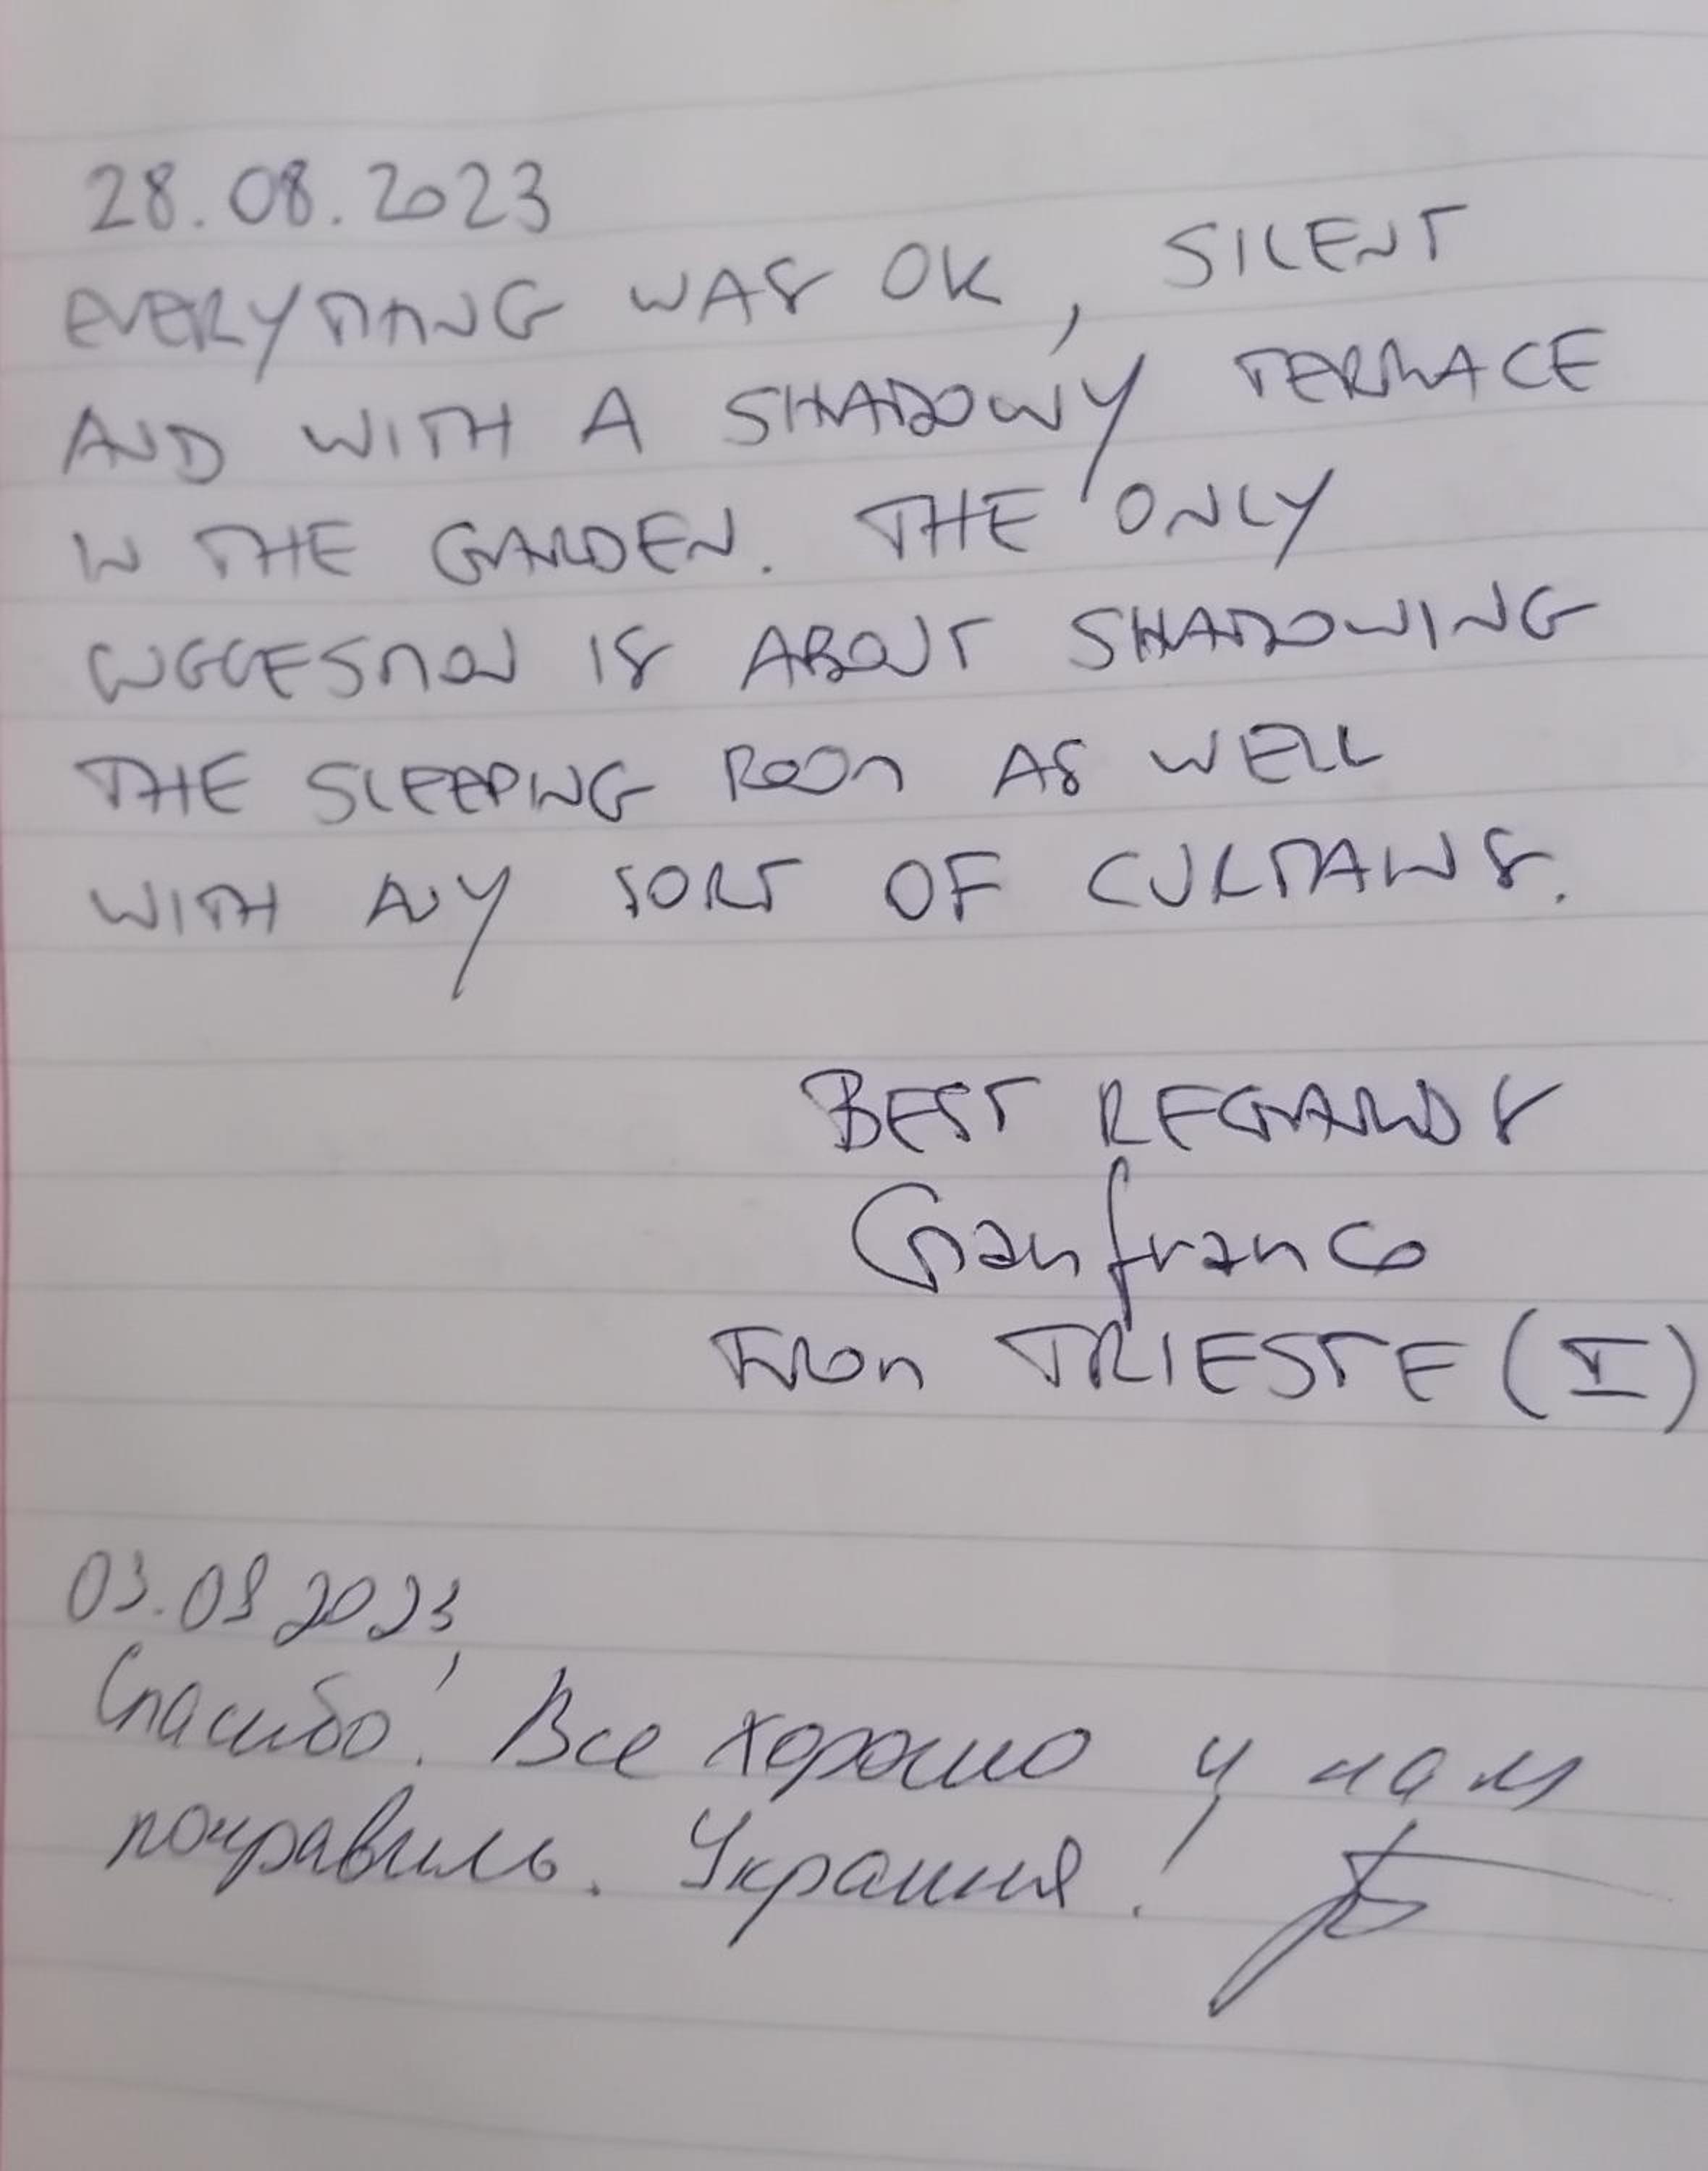 28.08.2023
EVERYTHING WAS OK, SILENT
AND WITH A SHADOWY TERRACE
IN THE GARDEN. THE ONLY
SUGGESTION IS ABOUT SHADOWING
THE SLEEPING ROOM AS WELL
WITH ANY SORT OF CURTAINS.
BEST REGARDS
Gianfranco
FROM TRIESTE (I)
03.09 2023
Спасибо! Все хорошо, нам
понравилось. Украина!